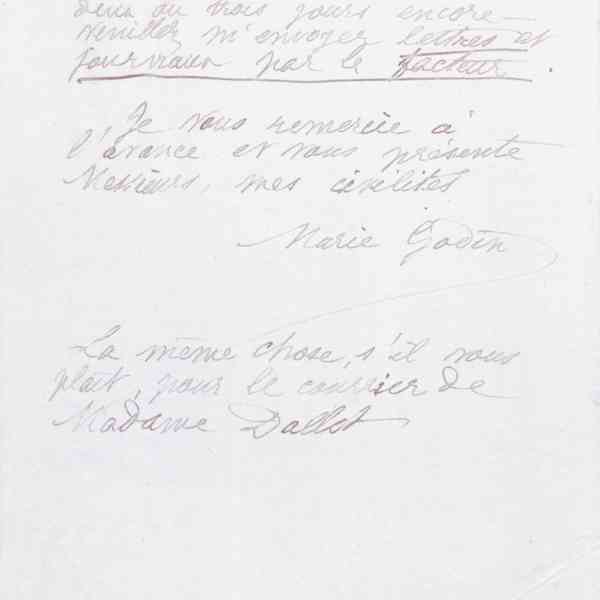 deux ou trois jours encore
veuillez m'envoyer lettres et
journaux par le facteur.
Je vous remercie à
l'avance et vous présente
Messieurs, mes civilités
Marie Godin
La même chose, s'il vous
plaît, pour le courrier de
Madame Dallot